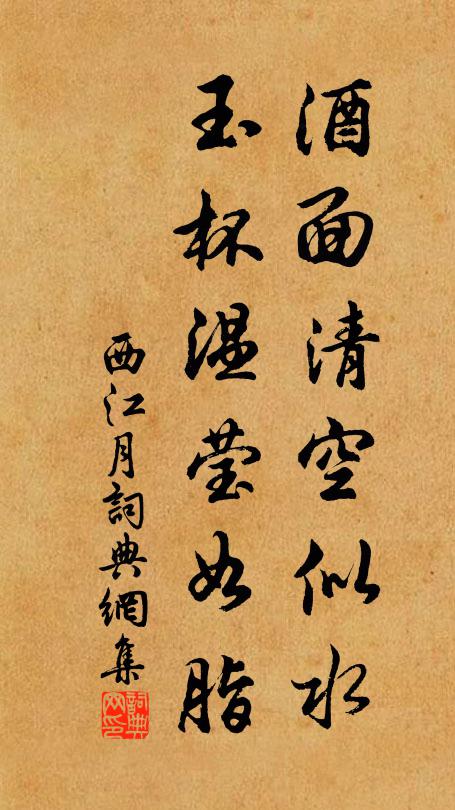 酒面清空似水
玉杯温莹如脂
西江月詞典網集
詞典网印